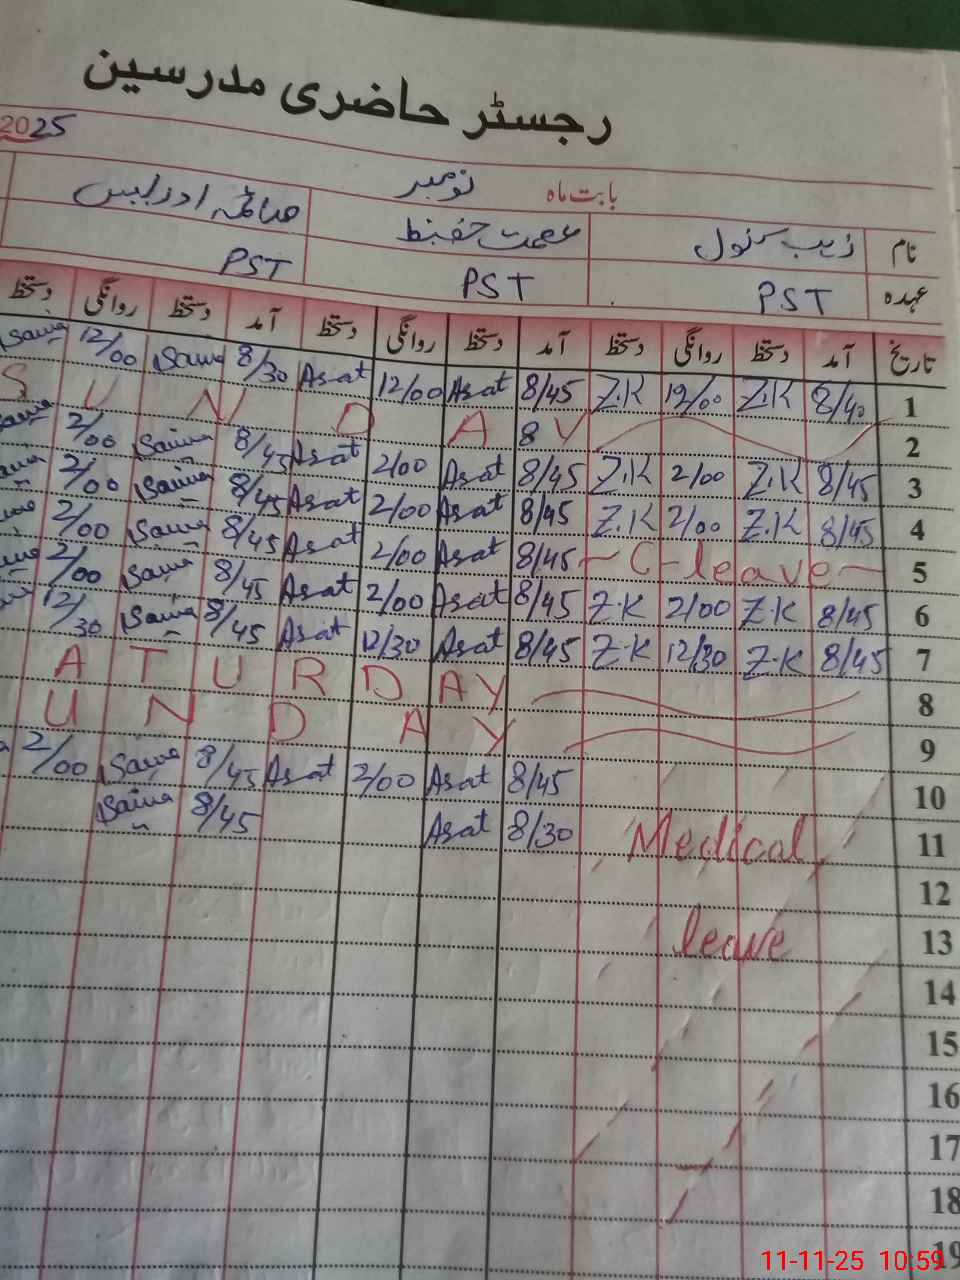 رجسٹر حاضری مدرسین
بابت ماہ نومبر 2025
نام زیب کنول عصمت حفیظ صائمہ ادریس
عہدہ PST PST PST
تاریخ آمد دستخط روانگی دستخط آمد دستخط روانگی دستخط آمد دستخط روانگی دستخط
1 8/40 Z.K 12/00 Z.K 8/45 Asat 12/00 Asat 8/30 Saima 12/00 Saima
2 S U N D A Y
3 8/45 Z.K 2/00 Z.K 8/45 Asat 2/00 Asat 8/45 Saima 2/00
4 8/45 Z.K 2/00 Z.K 8/45 Asat 2/00 Asat 8/45 Saima 2/00
5 C-leave 8/45 Asat 2/00 Asat 8/45 Saima 2/00
6 8/45 Z.K 2/00 Z.K 8/45 Asat 2/00 Asat 8/45 Saima 2/00
7 8/45 Z.K 12/30 Z.K 8/45 Asat 12/30 Asat 8/45 Saima 12/30
8 A T U R D A Y
9 U N D A Y
10 8/45 Asat 2/00 Asat 8/45 Saima 2/00
11 Medical 8/30 Asat 8/45 Saima
12
13 leave
14
15
16
17
18
19
11-11-25 10:59